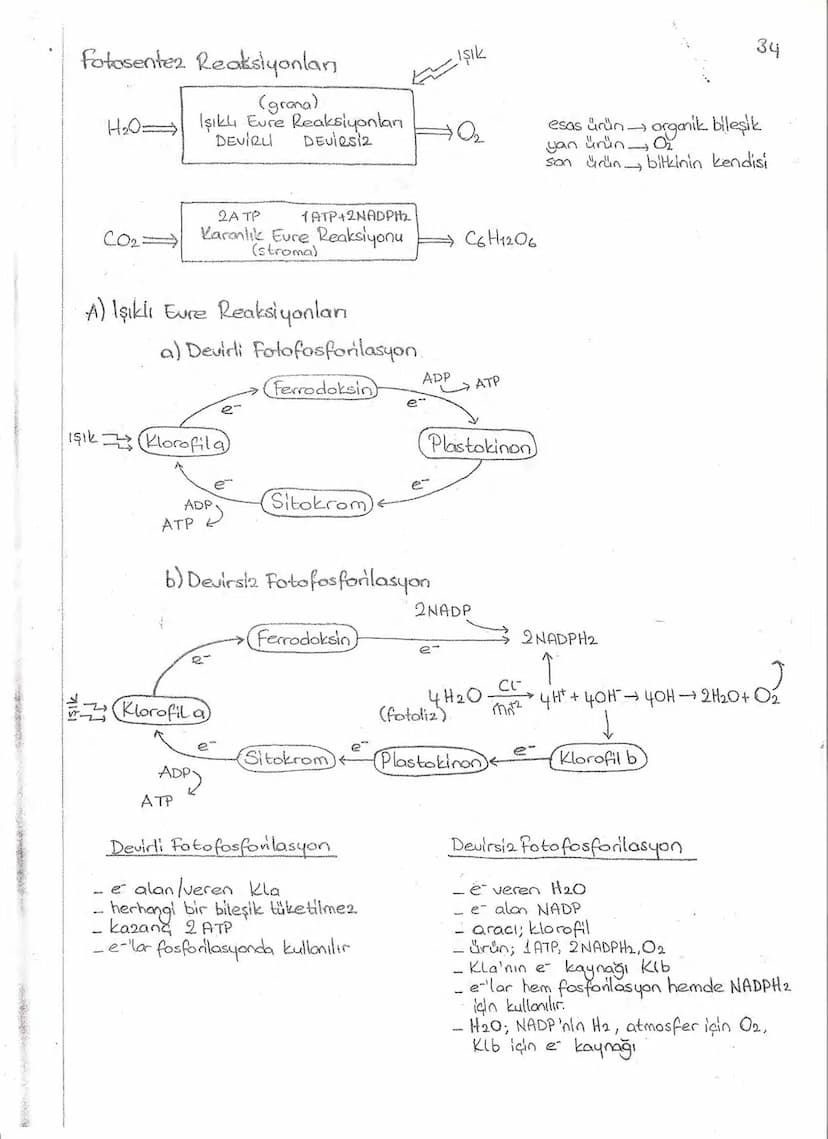 34
Fotosentez Reaksiyonları
Işık
(grana)
H2O Işıklı Evre Reaksiyonları O2
DEVİRLİ DEVİRSİZ
esas ürün → organik bileşik
yan ürün → O2
son ürün → bitkinin kendisi
2ATP 1ATP+2NADPH2
CO2 Karanlık Evre Reaksiyonu C6H12O6
(stroma)
A) Işıklı Evre Reaksiyonları
a) Devirli Fotofosforilasyon
Ferrodoksin
ADP → ATP
e-
e-
Işık
Klorofil a
Plastokinon
e-
e-
Sitokrom
ADP
ATP
b) Devirsiz Fotofosforilasyon
2NADP
Ferrodoksin
2NADPH2
e-
e-
Işık
Klorofil a
4H2O Cl- Mn+2 → 4H+ + 4OH- → 4OH → 2H2O + O2
(fotoliz)
e-
Sitokrom
e-
Plastokinon
e-
Klorofil b
ADP
ATP
Devirli Fotofosforilasyon
- e- alan/veren Kla
- herhangi bir bileşik tüketilmez
- kazanç 2 ATP
- e-'lar fosforilasyonda kullanılır
Devirsiz Fotofosforilasyon
- e- veren H2O
- e- alan NADP
- aracı; klorofil
- ürün; 1ATP, 2NADPH2, O2
- Kla'nın e- kaynağı Klb
- e-'lar hem fosforilasyon hemde NADPH2
için kullanılır.
- H2O; NADP'nin H2, atmosfer için O2,
Klb için e- kaynağı